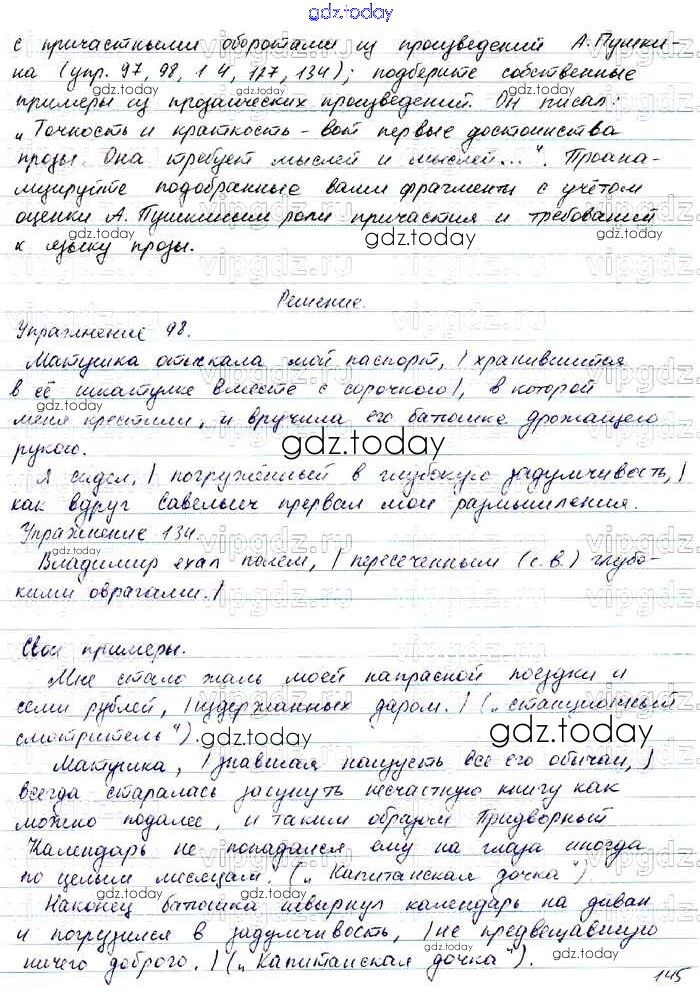 gdz.today
с причастными оборотами из произведений А. Пушки-
на (упр. 97, 98, 1 4, 127, 134); подберите собственные
примеры из прозаических произведений. Он писал:
„Точность и краткость – вот первые достоинства
прозы. Она требует мыслей и мыслей...“. Проана-
лизируйте подобранные вами фрагменты с учётом
оценки А. Пушкиным роли причастия и требований
к языку прозы.
Решение.
Упражнение 98.
Матушка отыскала мой паспорт, | хранившийся
в её шкатулке вместе с сорочкою |, в которой
меня крестили, и вручила его батюшке дрожащею
рукою.
Я сидел, | погружённый в глубокую задумчивость, |
как вдруг Савельич прервал мои размышления.
Упражнение 134.
Владимир ехал полем, | пересеченным (с.в.) глубо-
кими оврагами. |
Свои примеры.
Мне стало жаль моей напрасной поездки и
семи рублей, | издержанных даром. | („Станционный
смотритель“).
Матушка, | знавшая наизусть все его обычаи, |
всегда старалась засунуть несчастную книгу как
можно подалее, и таким образом Придворный
Календарь не попадался ему на глаза иногда
по целым месяцам. („Капитанская дочка“)
Наконец батюшка швырнул календарь на диван
и погрузился в задумчивость, | не предвещавшую
ничего доброго. | („Капитанская дочка“).
145